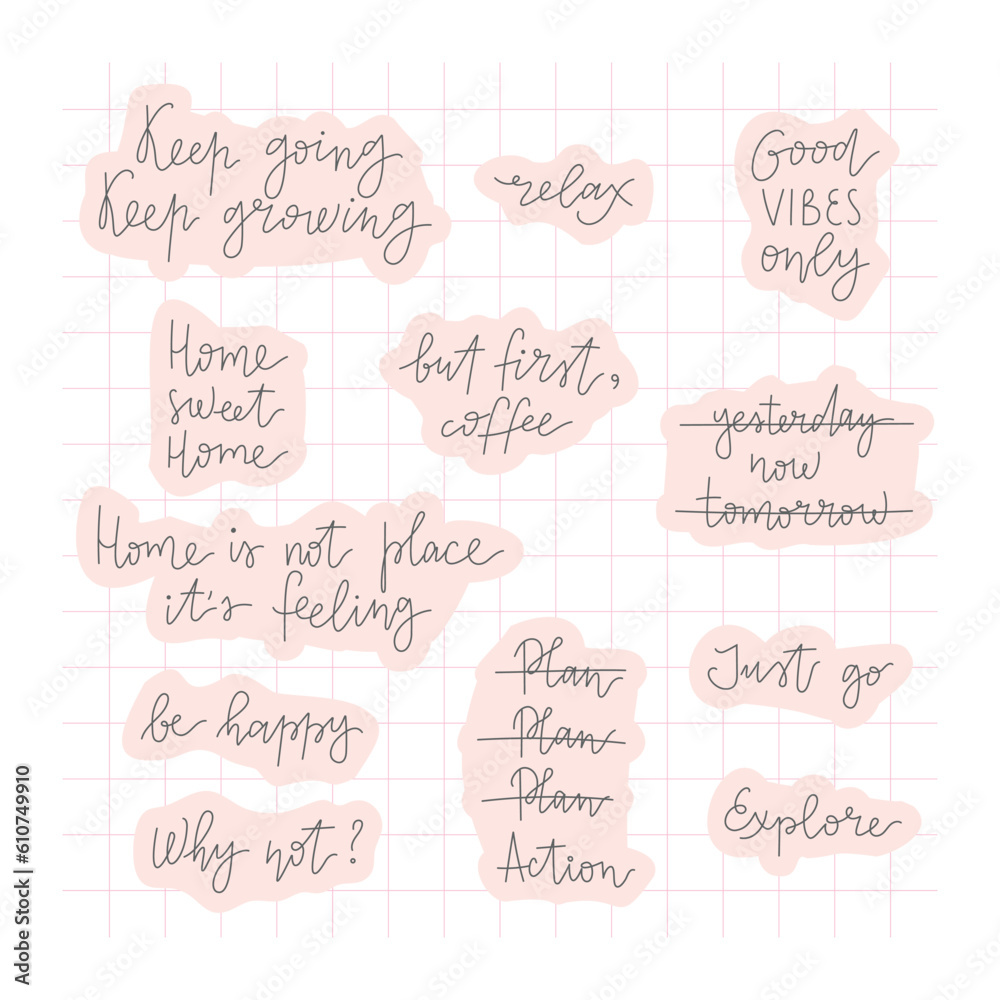 Keep going
Keep growing
relax
Good
VIBES
only
Home
sweet
Home
but first,
coffee
yesterday
now
tomorrow
Home is not place
it's feeling
be happy
Why not?
Plan
Plan
Plan
Action
Just go
Explore
Adobe Stock | #610749910
Adobe Stock